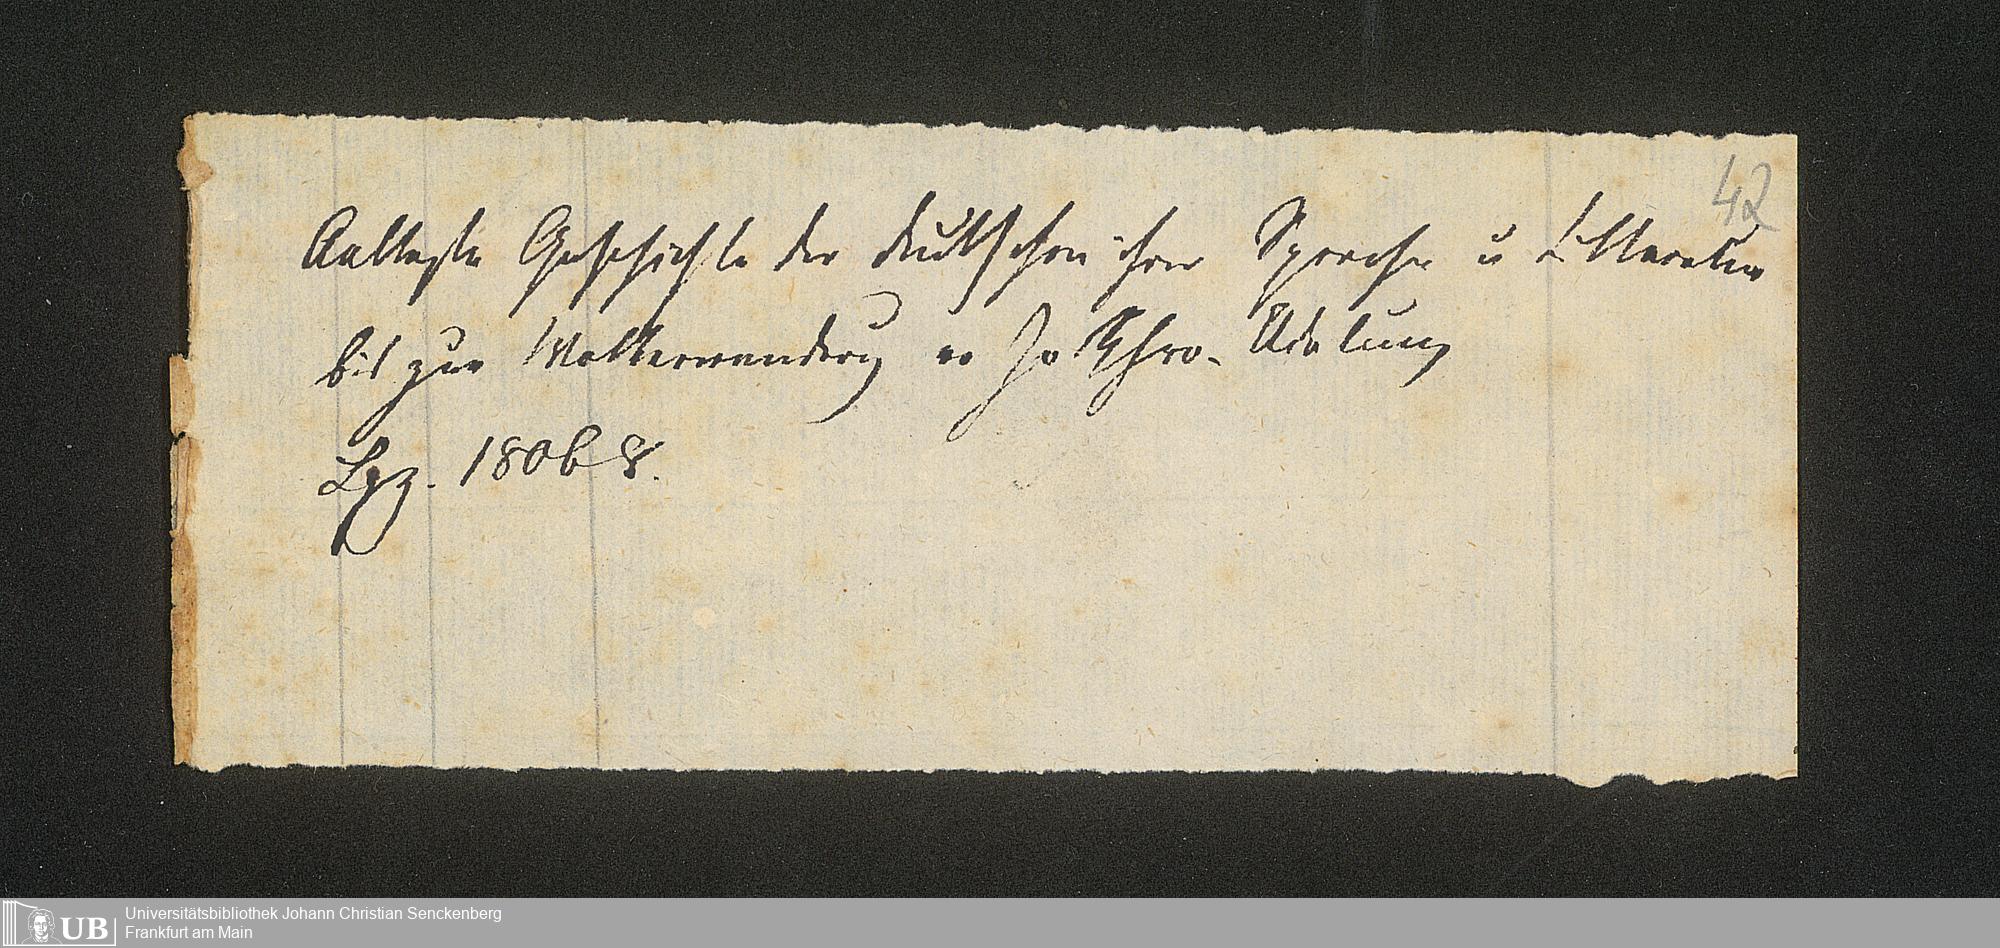 42
Aelteste Geschichte der deutschen ihrer Sprache u Litteratur
bis zur Volkerwandrung v Jo Chro. Adelung
Lpz. 1806 8.
UB Universitätsbibliothek Johann Christian Senckenberg
Frankfurt am Main